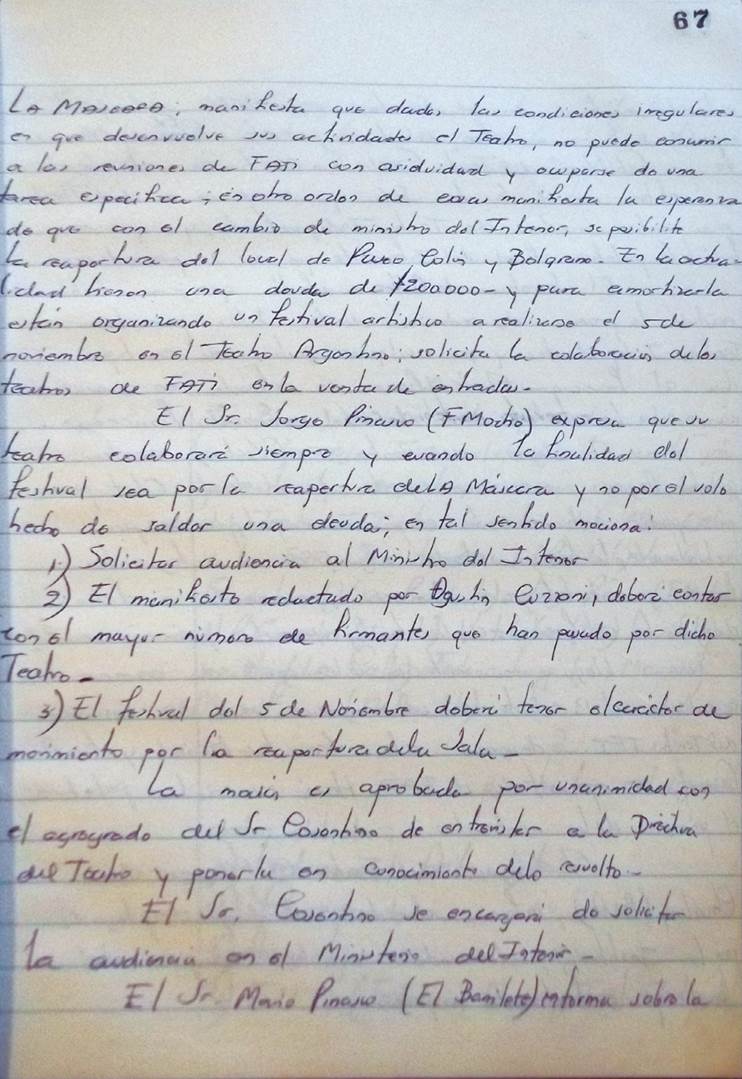 67
La Mascara; manifiesta que dadas las condiciones irregulares
en que desenvuelve sus actividades el Teatro, no puede concurrir
a las reuniones de FATI con asiduidad y ocuparse de una
tarea especifica; en otro orden de cosas manifiesta la esperanza
de que con el cambio de ministro del Interior, se posibilite
la reapertura del local de Paseo Colón y Belgrano. En la actua-
lidad tienen una deuda de $200.000- y para amortizarla
están organizando un festival artístico a realizarse el 5 de
noviembre en el Teatro Argentino; solicita la colaboración de los
teatros de FATI en la venta de entradas.
El Sr. Jorge Pinasco (F Mocho) expresa que su
teatro colaborará siempre y cuando la finalidad del
festival sea por la reapertura de La Máscara y no por el solo
hecho de saldar una deuda; en tal sentido mociona:
1) Solicitar audiencia al Ministro del Interior
2) El manifiesto redactado por Agustin Cuzzani, deberá contar
con el mayor número de firmantes que han pasado por dicho
Teatro.-
3) El festival del 5 de Noviembre deberá tener el carácter de
movimiento por la reapertura de la Sala-
La moción es aprobada por unanimidad con
el agregado del Sr Cosentino de entrevistar a la Directiva
del Teatro y ponerla en conocimiento de lo resuelto-
El Sr. Cosentino se encargará de solicitar
la audiencia en el Ministerio del Interior-
El Sr Mario Pinasco (El Barrilete) informa sobre la